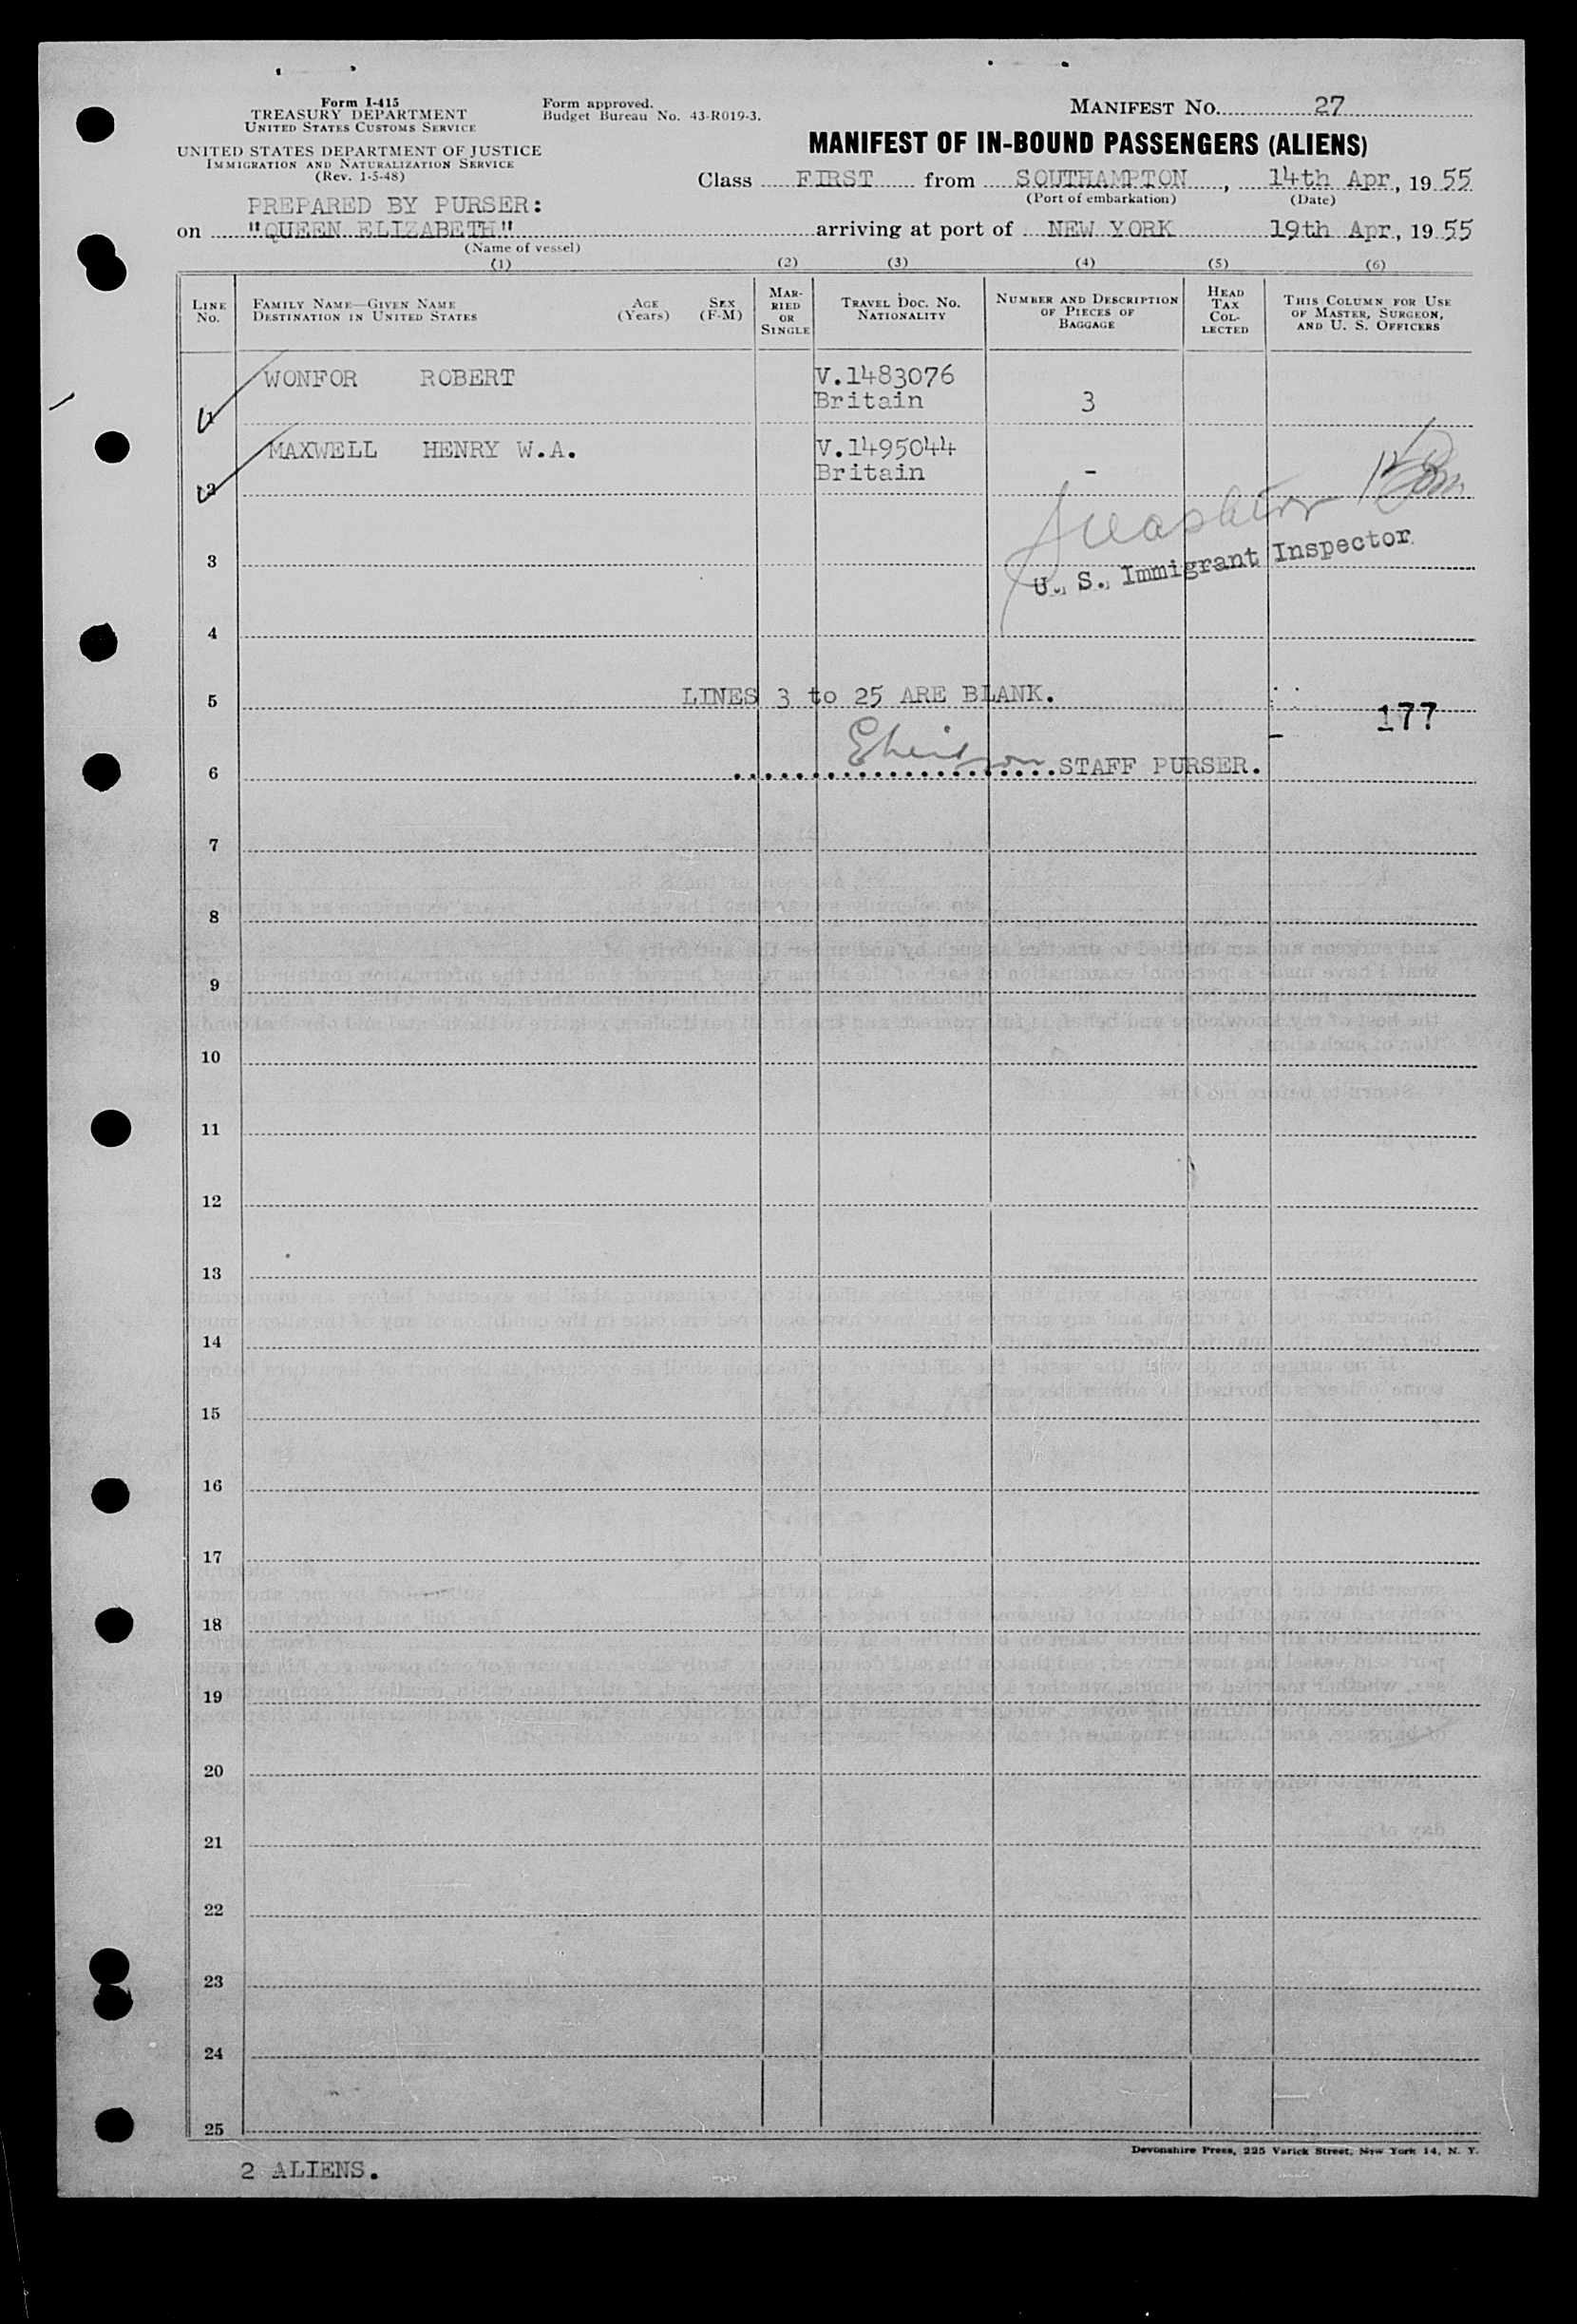 Form I-415
TREASURY DEPARTMENT
UNITED STATES CUSTOMS SERVICE
UNITED STATES DEPARTMENT OF JUSTICE
IMMIGRATION AND NATURALIZATION SERVICE
(Rev. 1-5-48)
Form approved.
Budget Bureau No. 43-R019-3.
MANIFEST NO. 27
MANIFEST OF IN-BOUND PASSENGERS (ALIENS)
Class FIRST from SOUTHAMPTON, 14th Apr, 19 55
(Port of embarkation) (Date)
PREPARED BY PURSER:
on "QUEEN ELIZABETH" arriving at port of NEW YORK 19th Apr, 19 55
(Name of vessel)
(1) (2) (3) (4) (5) (6)
LINE NO.
FAMILY NAME—GIVEN NAME
DESTINATION IN UNITED STATES
AGE (Years)
SEX (F-M)
MARRIED OR SINGLE
TRAVEL DOC. NO. NATIONALITY
NUMBER AND DESCRIPTION OF PIECES OF BAGGAGE
HEAD TAX COLLECTED
THIS COLUMN FOR USE OF MASTER, SURGEON, AND U. S. OFFICERS
WONFOR ROBERT V.1483076
1 Britain 3
MAXWELL HENRY W.A. V.1495044
2 Britain -
3
U. S. Immigrant Inspector
4
5 LINES 3 to 25 ARE BLANK.
177
6 STAFF PURSER.
7
8
9
10
11
12
13
14
15
16
17
18
19
20
21
22
23
24
25
Devonshire Press, 225 Varick Street, New York 14, N. Y.
2 ALIENS.